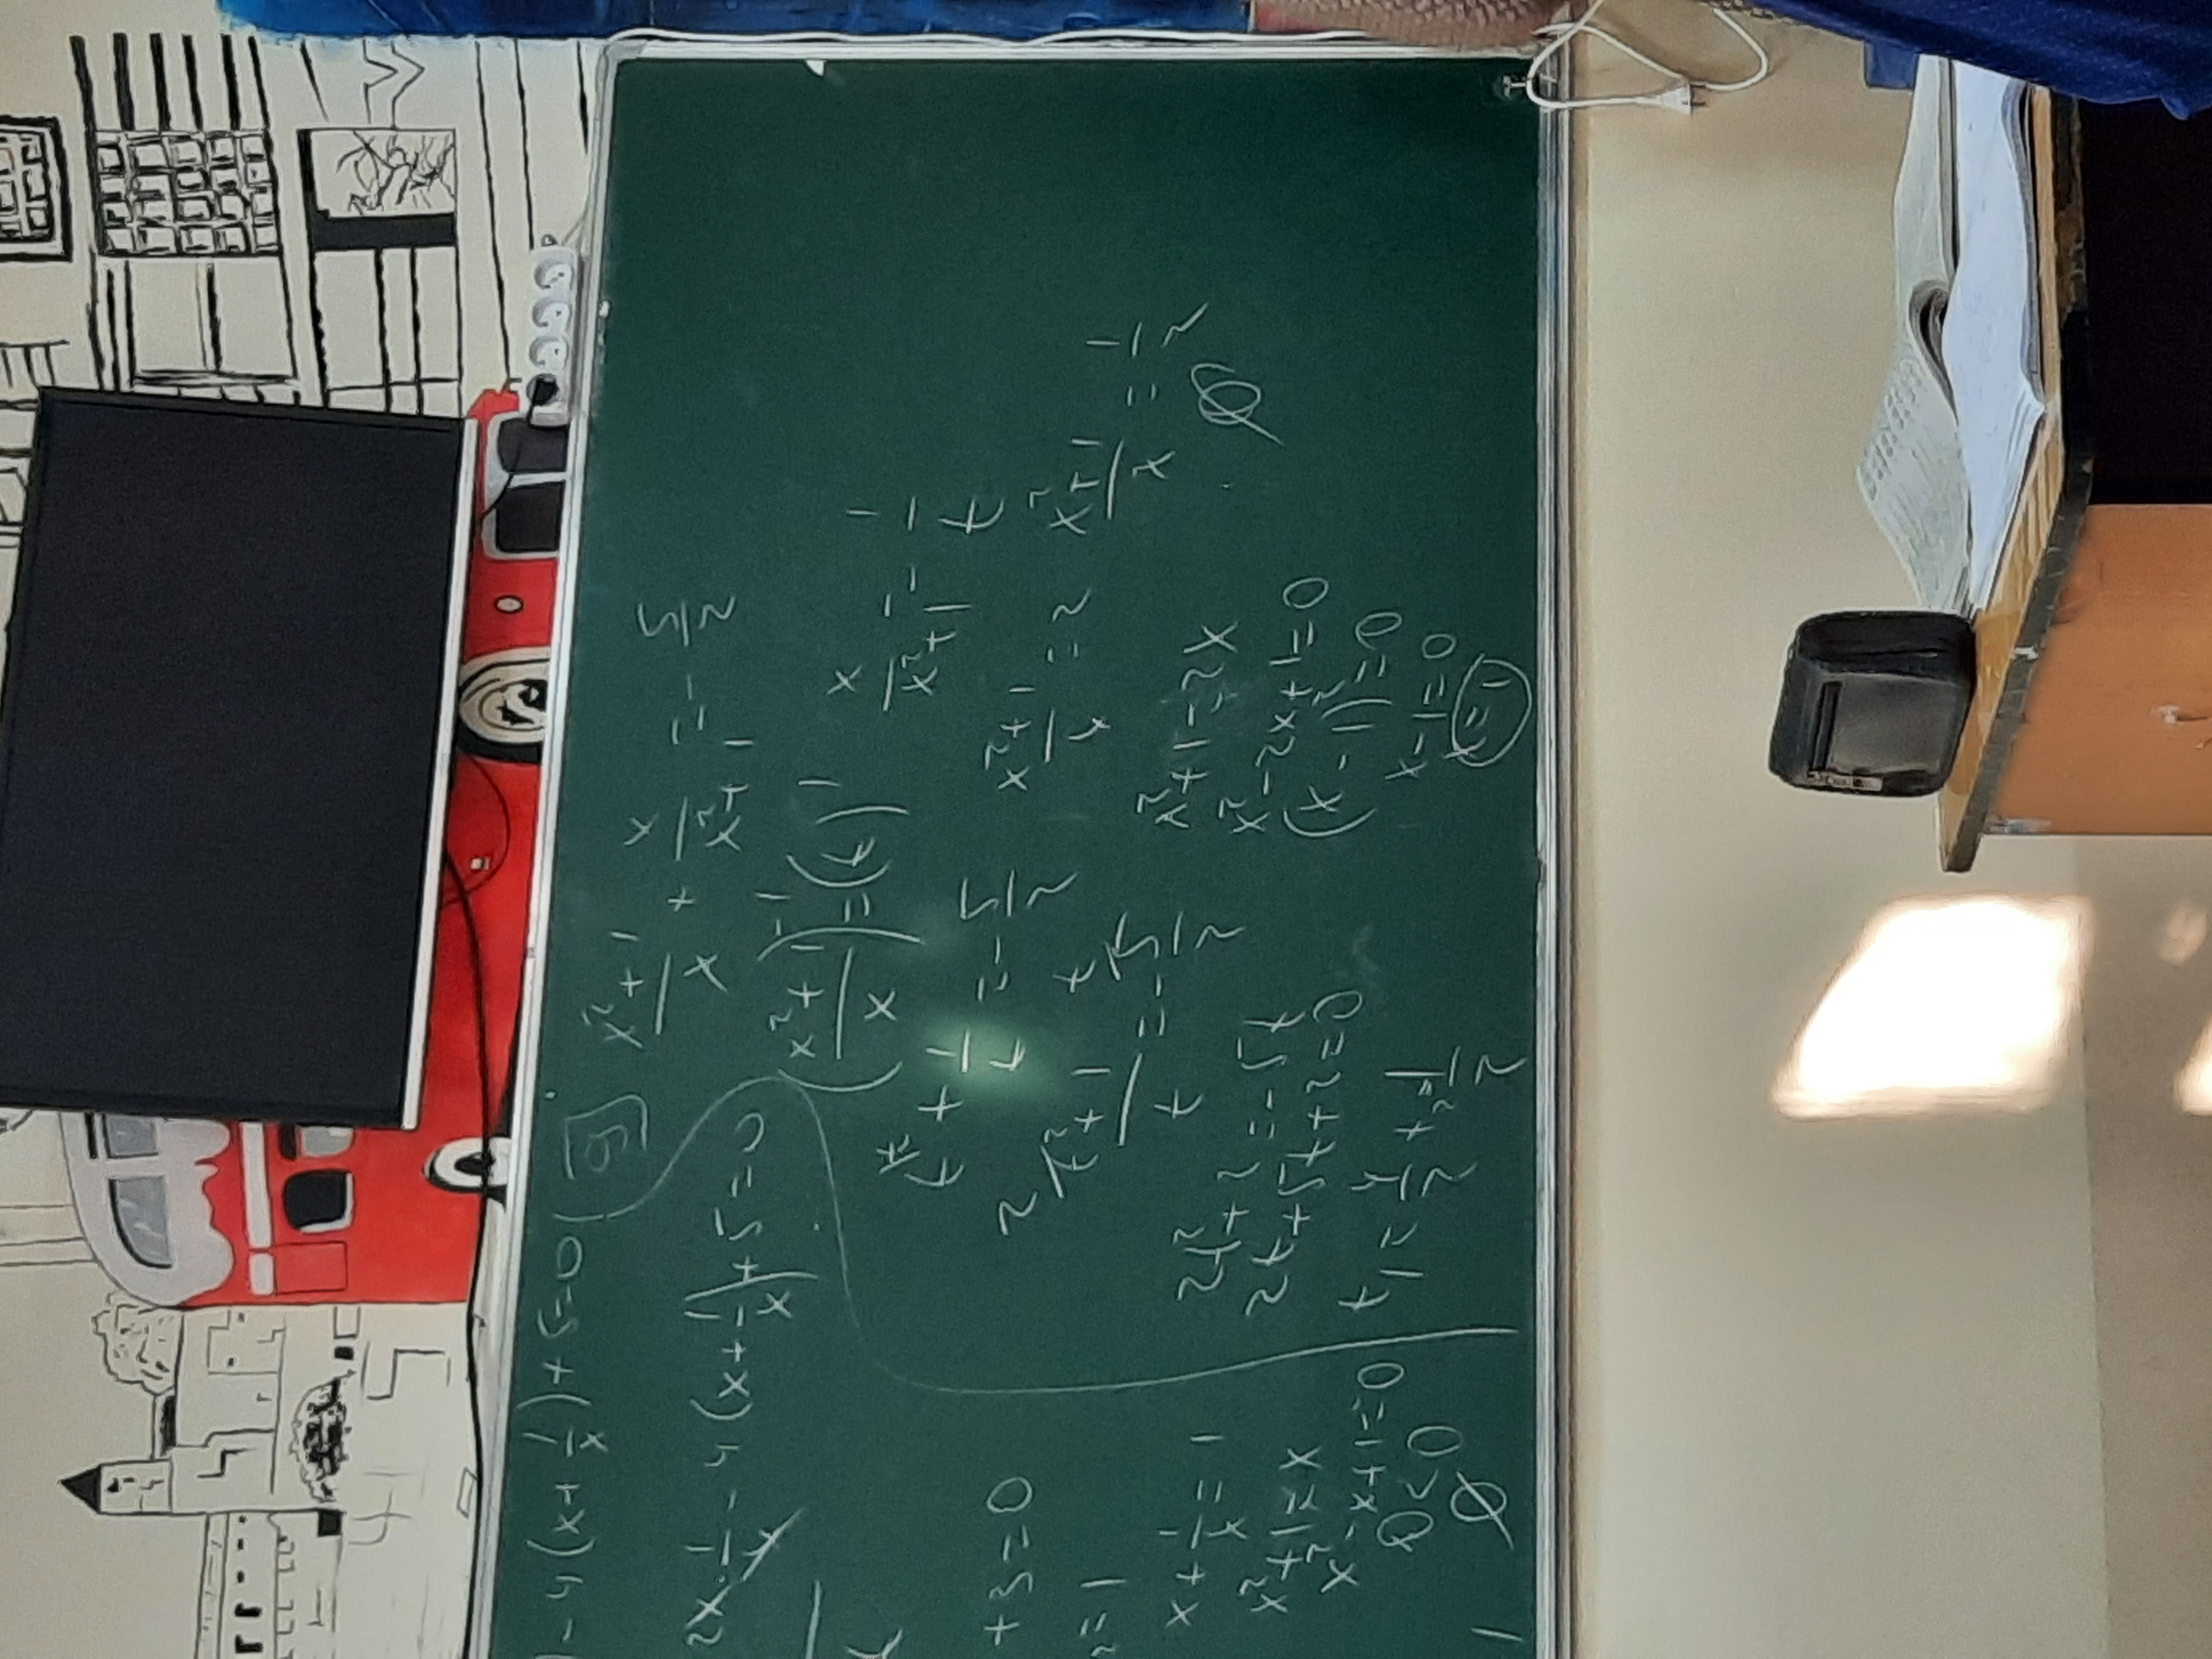 ) - 4(x + 1/x) + 5 = 0
2x · 1/x - 4(x + 1/x) + 5 = 0
+ 3 = 0
2 = 1
x + 1/x = 1
x² + 1 = x
x² - x + 1 = 0
D < 0
∅
9
(x² + 1)/x + x/(x² + 1) = - 5/2
((x² + 1)/x)⁻¹ = (t)¹
x/(x² + 1) = 1/t
t + 1/t = - 5/2
(t² + 1)/t = - 5/2
2t² + 2 = - 5t
2t + 5t + 2 = 0
t₁ = 4/2 t₂ = 1/2
(x² + 1)/x = 2
x² + 1 = 2x
x² - 2x + 1 = 0
(x - 1)² = 0
x - 1 = 0
x = 1
(x² + 1)/x = 1/2
∅